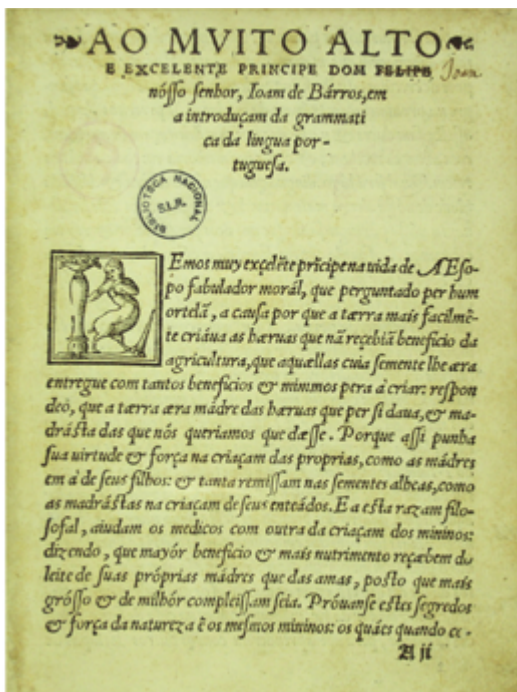 AO MVITO ALTO
E EXCELENTE PRINCIPE DOM FELIPE Joan
nósso senhor, Ioam de Bárros, em
a introduçam da grammati
ca da lingua por-
tuguesa.
BIBLIOTECA NACIONAL
S.L.R.
LEmos muy exçelẽte prĩcipe na uida de AEso-
po fabulador morál, que perguntado per hum
ortelã, a causa por que a tærra mais facilmẽ-
te criáua as hæruas que nã reçebiã benefiçio da
agricultura, que aquællas cuia semente lhe æra
entregue com tantos benefiçios & mimmos pera à criar: respon
deò, que a tærra æra mádre das hæruas que per si daua, & ma-
drásta das que nós queriamos que dæsse. Porque assi punha
sua uirtude & força na criaçam das proprias, como as mádres
em à de seus filhos: & tanta remissam nas sementes alheas, como
as madrástas na criaçam de seus enteádos. E a esta razam filo-
sofal, aiudam os medicos com outra da criaçam dos mininos:
dizendo, que mayór benefiçio & mais nutrimento reçæbem do
leite de suas próprias mádres que das amas, posto que mais
grósso & de milhór compleissam seia. Próuanse estes segredos
& força da natureza ẽ os mesmos mininos: os quáes quando
A ij